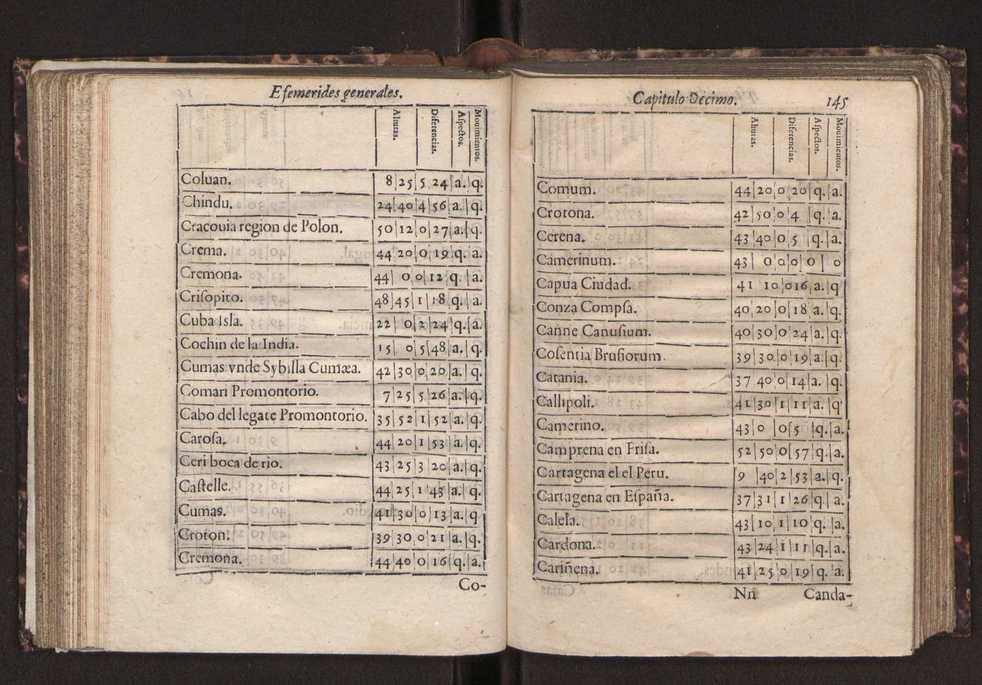 Efemerides generales.
Alturas. Diferencias. Aspectos. Mouimientos.
Coluan. 8 25 5 24 a. q.
Chindu. 24 40 4 56 a. q.
Cracouia region de Polon. 50 12 0 27 a. q.
Crema. 44 20 0 19 q. a.
Cremona. 44 0 0 12 q. a.
Crisopito. 48 45 1 18 q. a.
Cuba Isla. 22 0 2 24 q. a.
Cochin de la India. 15 0 5 48 a. q.
Cumas vnde Sybilla Cumæa. 42 30 0 20 a. q.
Comari Promontorio. 7 25 5 26 a. q.
Cabo del legate Promontorio. 35 52 1 52 a. q.
Carosa. 44 20 1 53 a. q.
Ceri boca de rio. 43 25 3 20 a. q.
Castelle. 44 25 1 43 a. q.
Cumas. 41 30 0 13 a. q
Croton. 39 30 0 21 a. q.
Cremona. 44 40 0 16 q. a.
Co-
Capitulo Decimo. 145
Alturas. Diferencias. Aspectos. Mouimientos.
Comum. 44 20 0 20 q. a.
Crotona. 42 50 0 4 q. a.
Cerena. 43 40 0 5 q. a.
Camerinum. 43 0 0 0 0 0
Capua Ciudad. 41 10 0 16 a. q
Conza Compsa. 40 20 0 18 a. q.
Canne Canusium. 40 30 0 24 a. q.
Cosentia Brusiorum. 39 30 0 19 a. q.
Catania. 37 40 0 14 a. q.
Callipoli. 41 30 1 11 a. q
Camerino. 43 0 0 5 q. a.
Camprena en Frisa. 52 50 0 57 q. a.
Cartagena el el Peru. 9 40 2 53 a. q.
Cartagena en España. 37 31 1 26 q. a.
Calela. 43 10 1 10 q. a.
Cardona. 43 24 1 11 q. a.
Cariñena. 41 25 0 19 q. a.
Nn Canda-